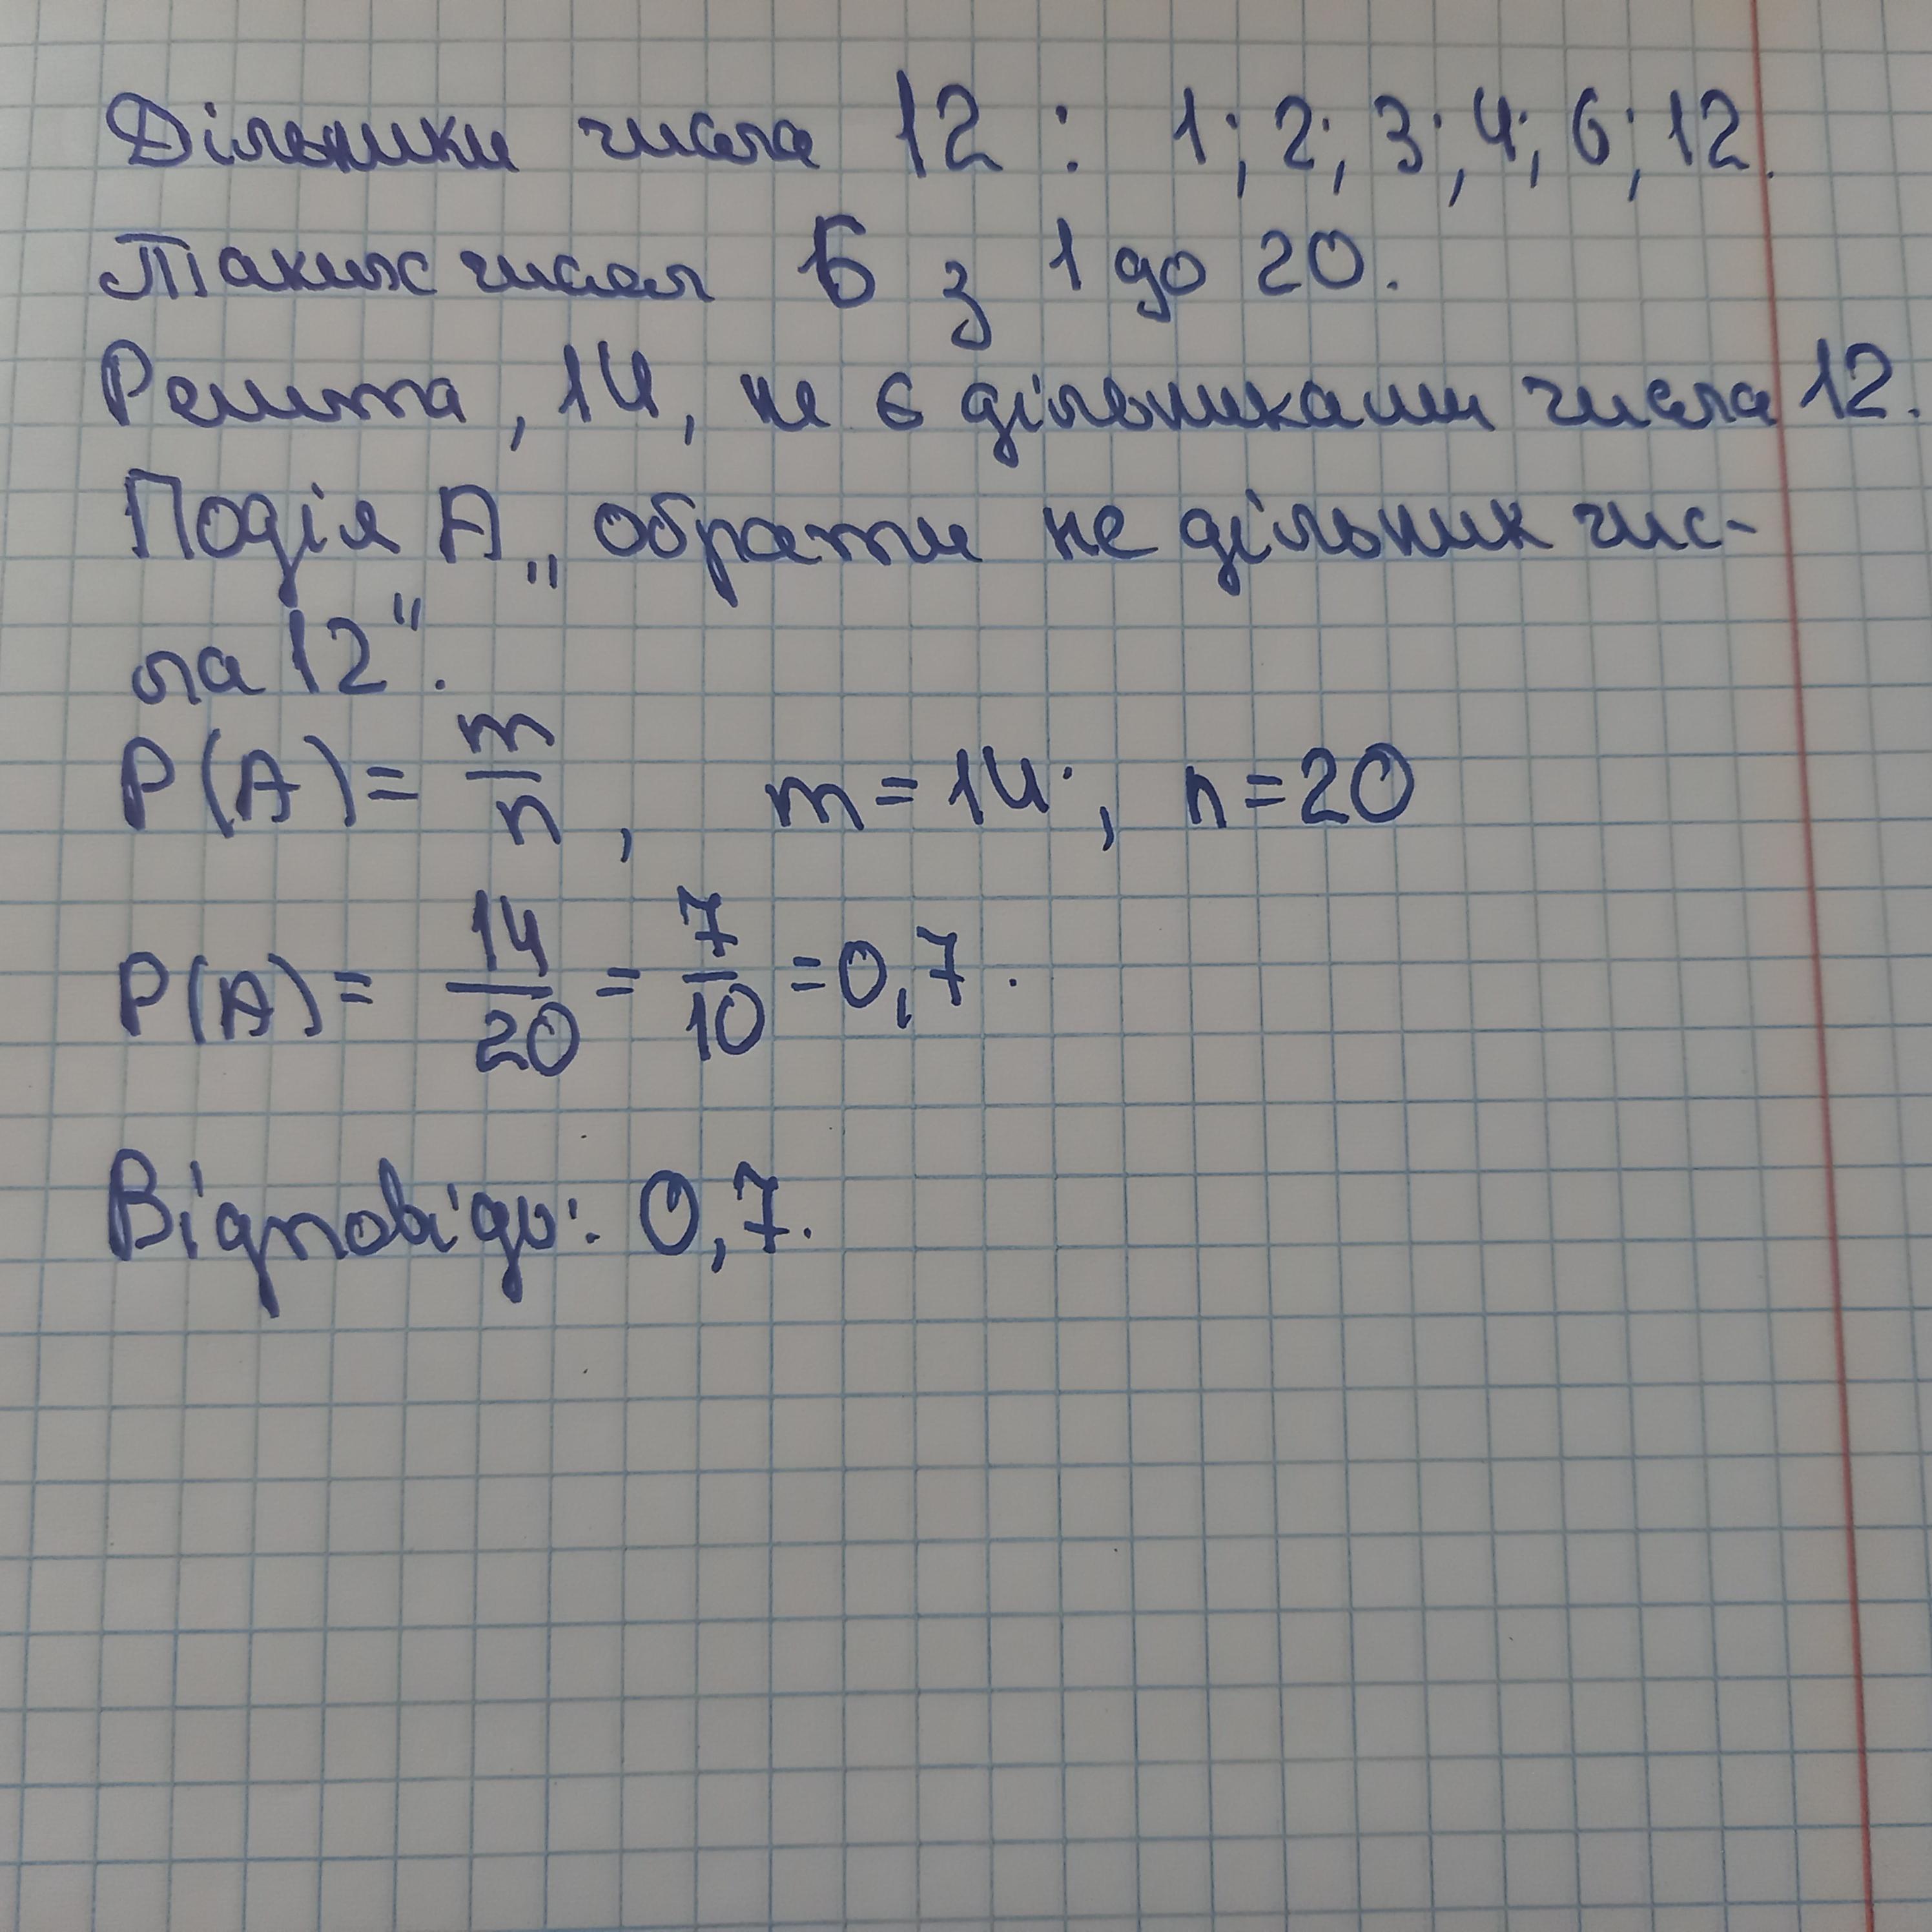 Дільники числа 12 : 1; 2; 3; 4; 6; 12.
Таких чисел 6 з 1 до 20.
Решта, 14, не є дільниками числа 12.
Подія А „ обрати не дільник чис-
ла 12".
P(A) = m/n , m = 14 ; n = 20
P(A) = 14/20 = 7/10 = 0,7 .
Відповідь: 0,7.